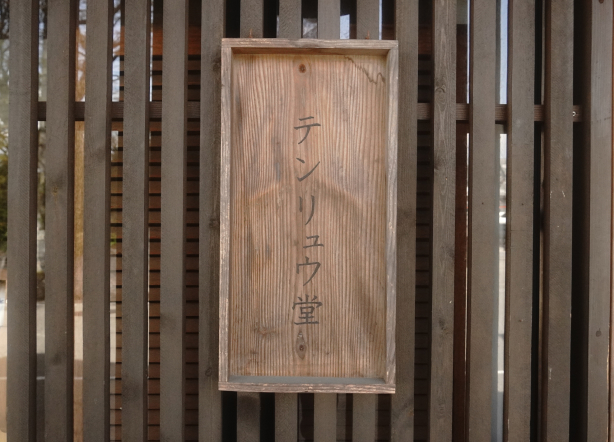 テンリュウ堂